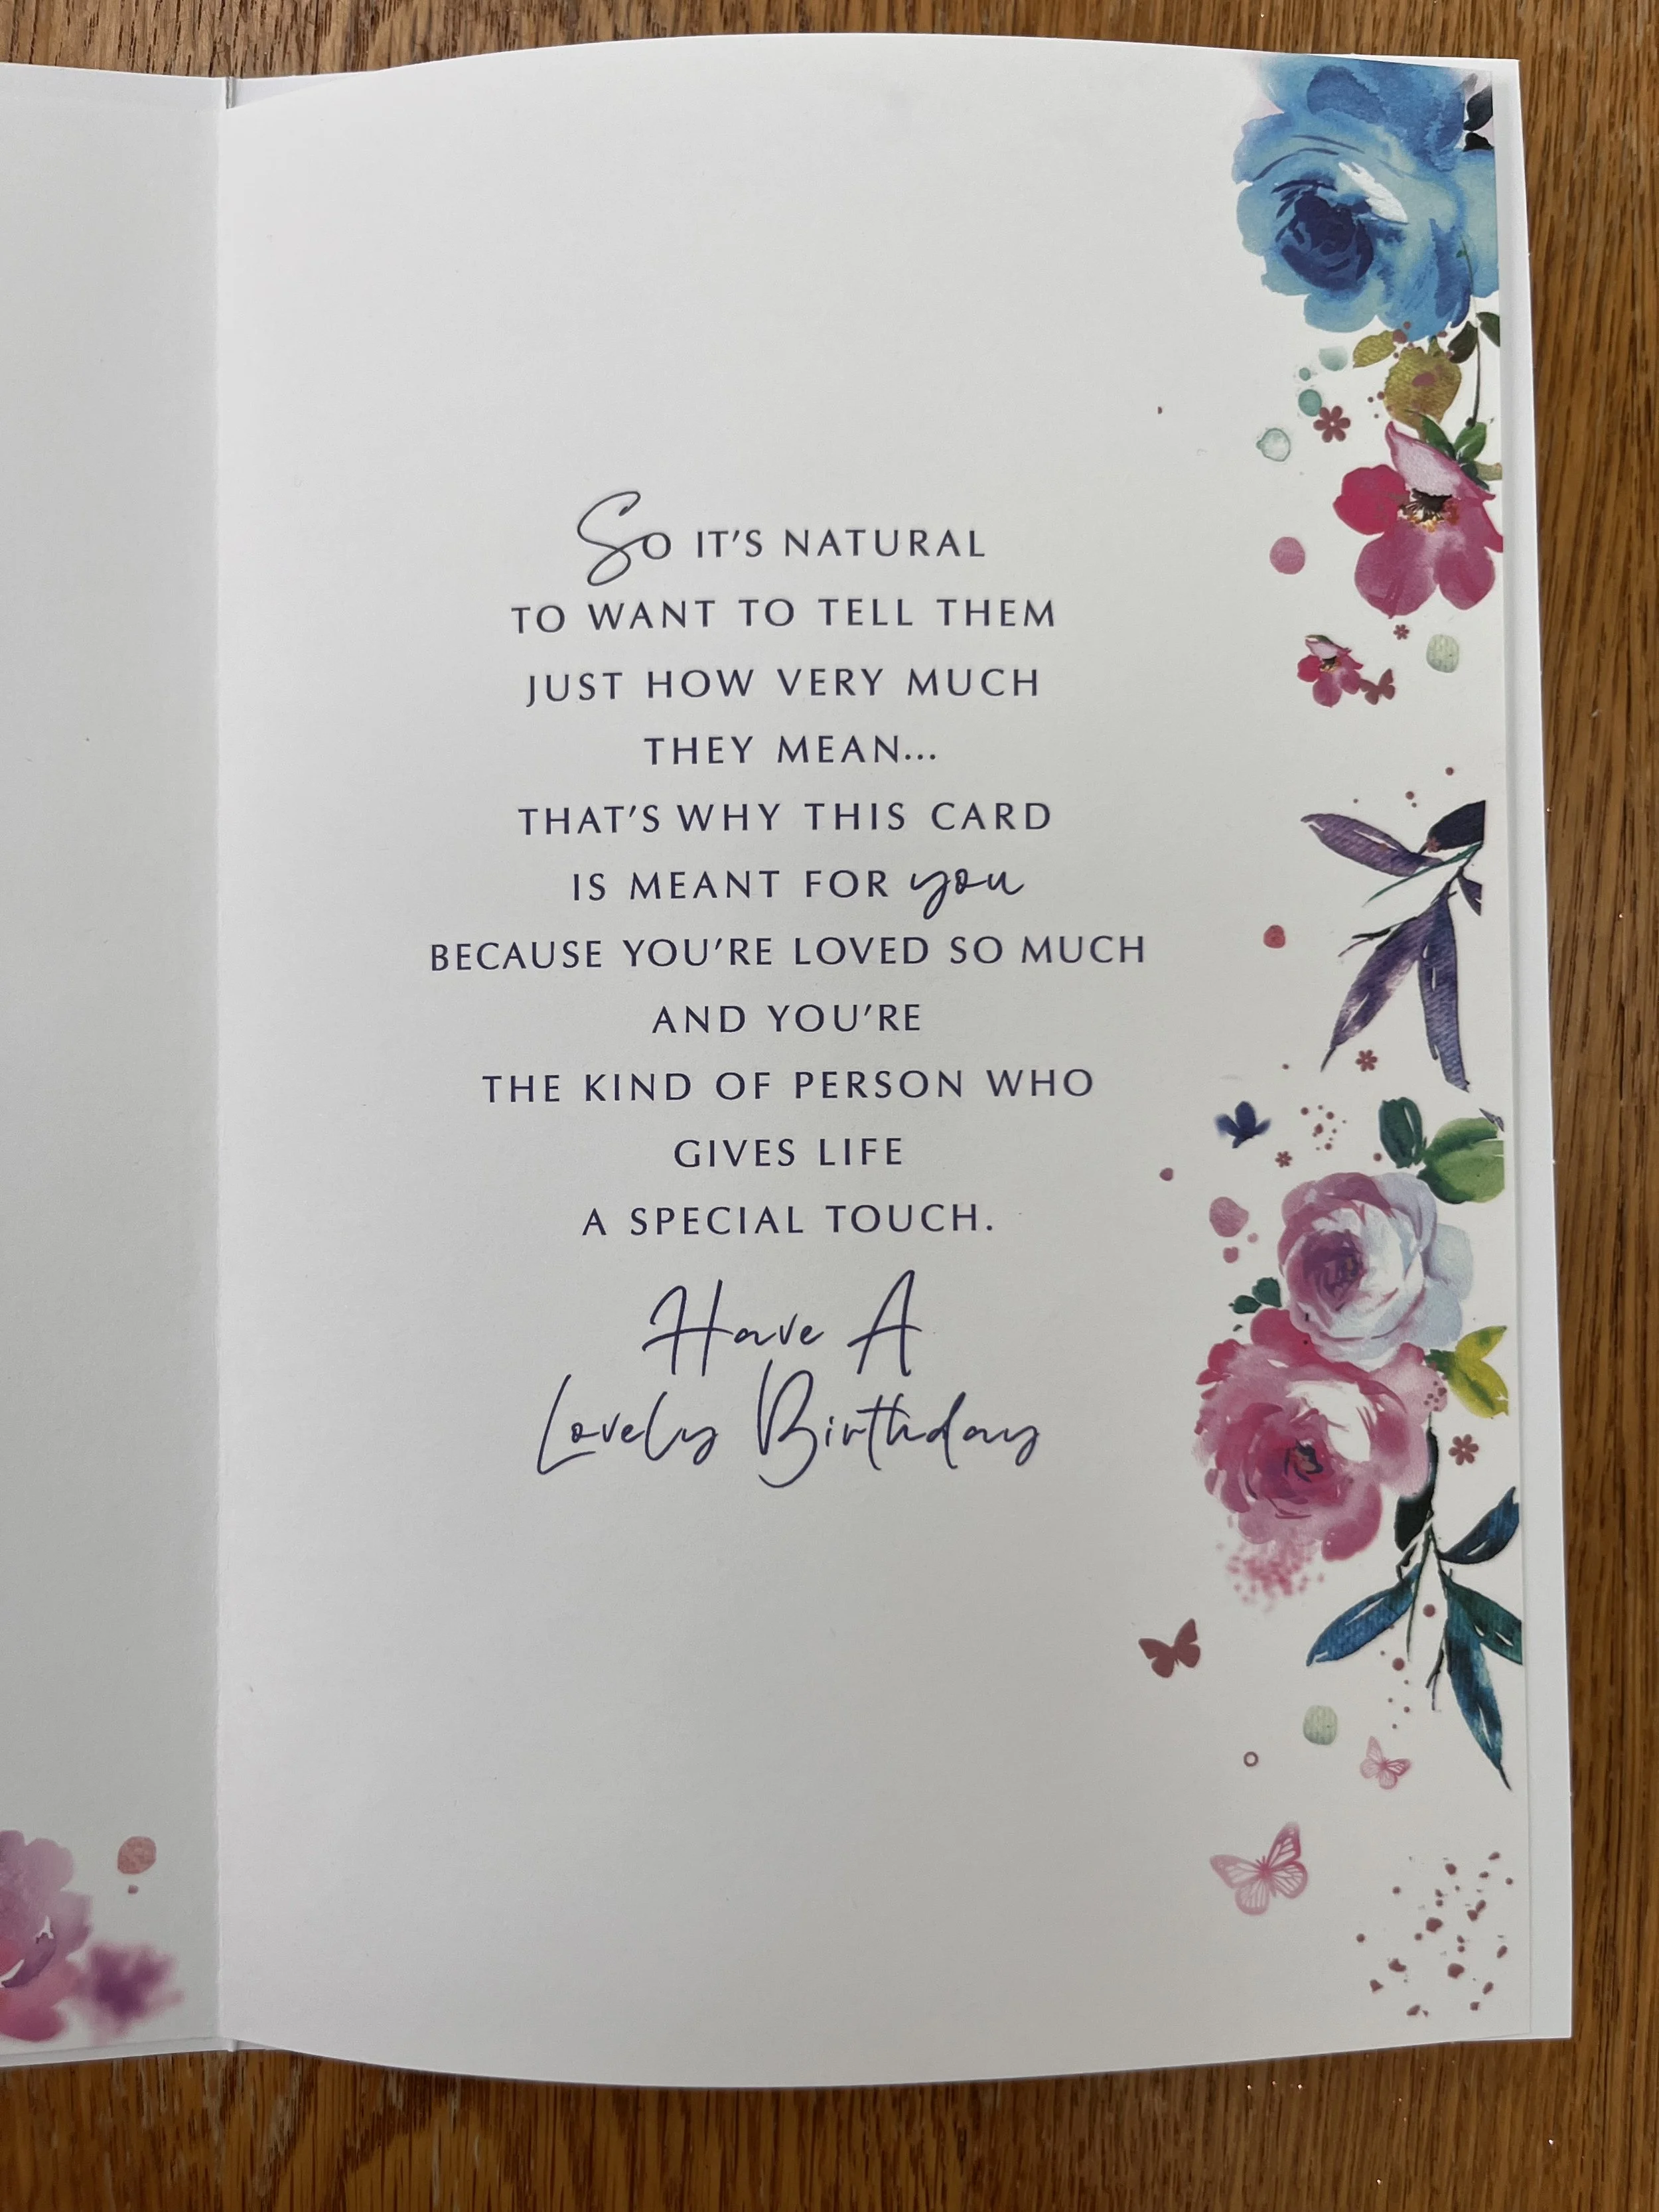 So IT'S NATURAL
TO WANT TO TELL THEM
JUST HOW VERY MUCH
THEY MEAN...
THAT'S WHY THIS CARD
IS MEANT FOR you
BECAUSE YOU'RE LOVED SO MUCH
AND YOU'RE
THE KIND OF PERSON WHO
GIVES LIFE
A SPECIAL TOUCH.
Have A
Lovely Birthday